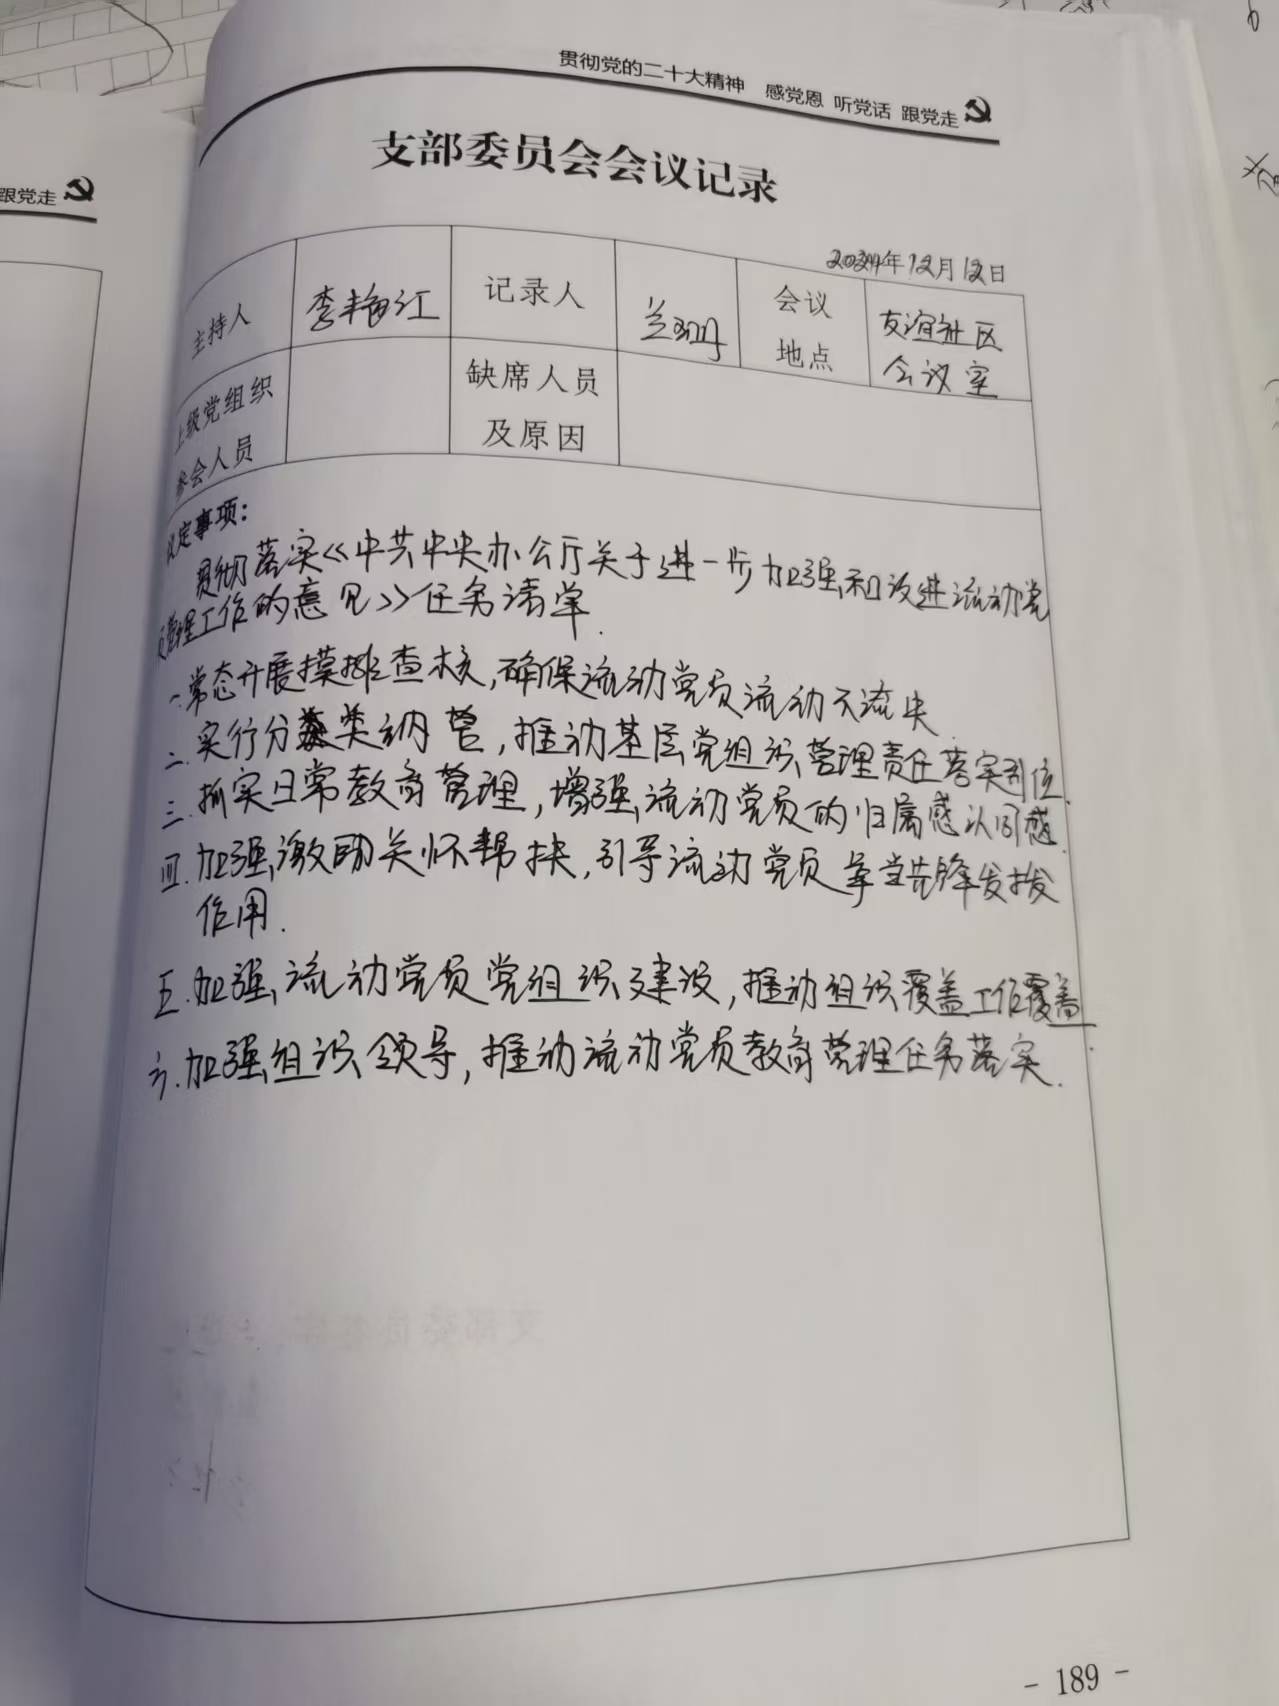 跟党走
贯彻党的二十大精神 感党恩 听党话 跟党走
支部委员会会议记录
2024年12月12日
主持人 李艳江 记录人 兰 会议地点 友谊社区会议室
上级党组织参会人员 缺席人员及原因
议定事项:
贯彻落实《中共中央办公厅关于进一步加强和改进流动党
员管理工作的意见》任务清单.
一.常态开展摸排查核,确保流动党员流动不流失.
二.实行分类纳管,推动基层党组织管理责任落实到位.
三.抓实日常教育管理,增强流动党员的归属感认同感.
四.加强激励关怀帮扶,引导流动党员争当先锋发拨
作用.
五.加强流动党员党组织建设,推动组织覆盖工作覆盖.
六.加强组织领导,推动流动党员教育管理任务落实.
- 189 -